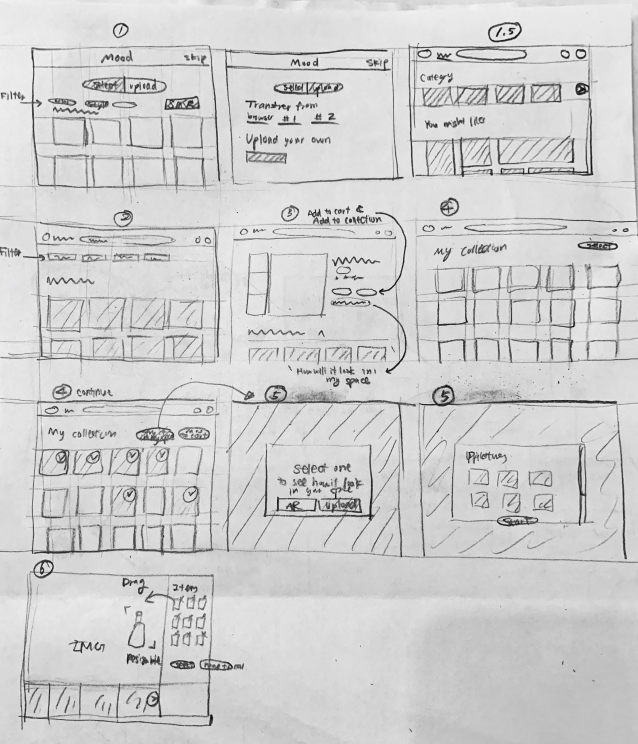 1
Mood
Skip
select
upload
Filter
Mood
Skip
select
upload
Transfer from
browser # 1 # 2
Upload your own
1.5
Category
You might like
2
Filter
3
Add to cart &
Add to collection
How will it look in
my space
4
My collection
select
4 continue
My collection
5
Select one
to see how it look
in your space
AR
upload
5
6
Drag
IMG
Resizable
Items